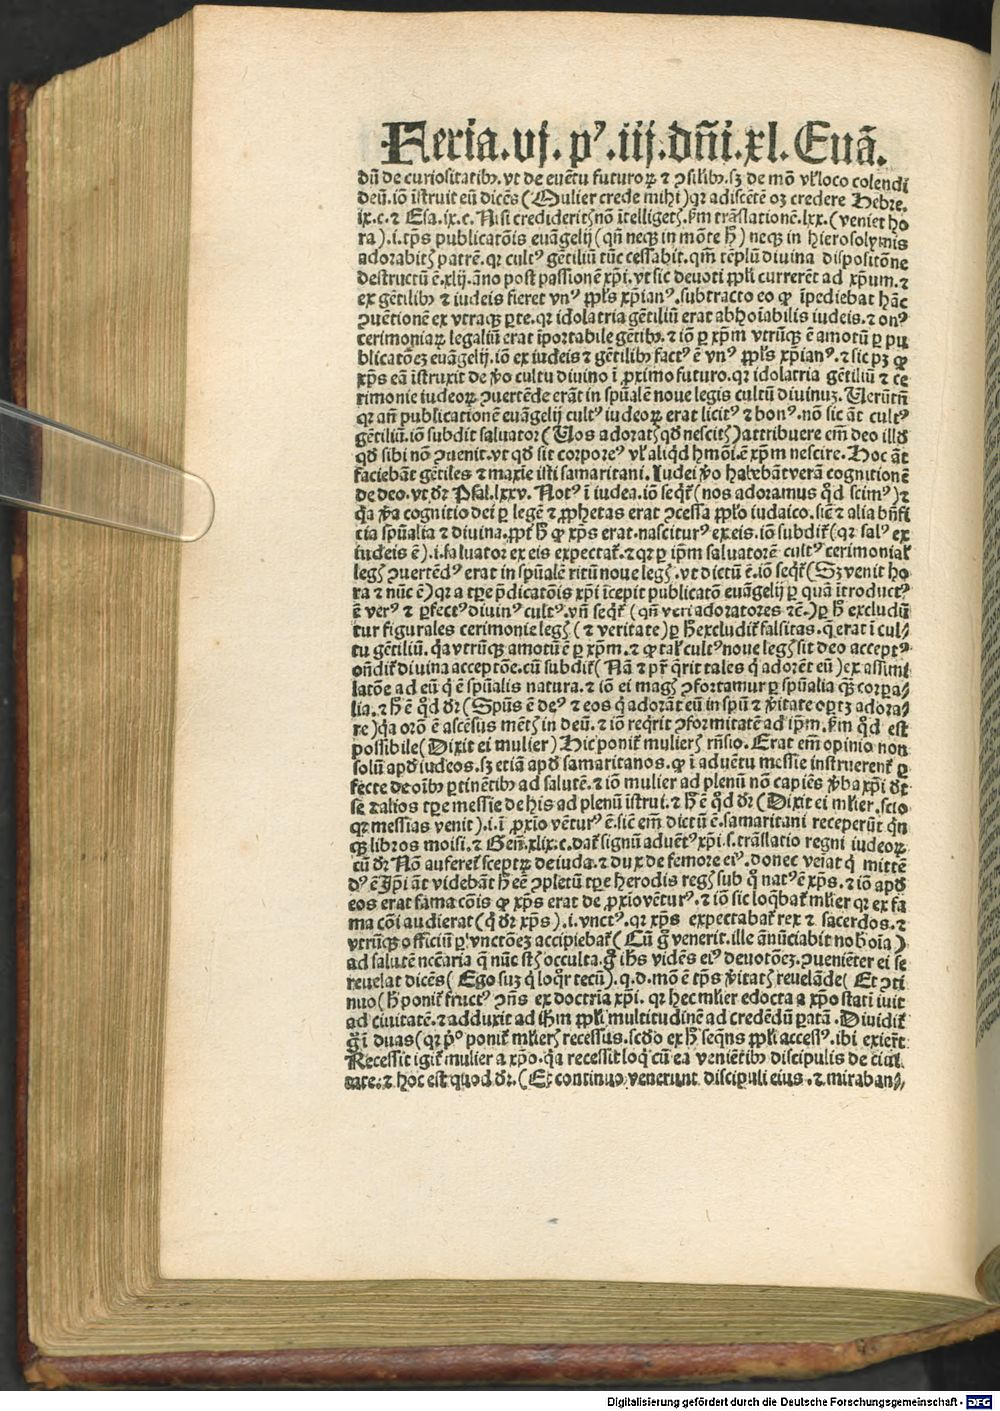 Feria.vj.pꝰ.iij.dñi.xl.Euã.
dũ de curiositatibꝫ.vt de euẽtu futuroꝝ ⁊ ꝯsilibꝫ.sꝫ de mõ vl' loco colendi
deũ.iõ ĩstruit eũ dicẽs (Mulier crede mihi) qꝛ adiscẽtẽ oꝫ credere Hebre.
ix.c.⁊ Esa.ix.c. Nisi credideritꝭ nõ ĩtelligetꝭ.ẜm trãslationẽ.lxx.(veniet ho
ra).i.tp̃s publicatõis euãgelij (qñ neqꝫ in mõte h̃) neqꝫ in hierosolymis
adorabitꝭ patrẽ.qꝛ cultꝰ gẽtiliũ tũc cessabit.qm̃ tẽplũ diuina dispositõne
destructũ ẽ.xlij.ãno post passionẽ xp̃i.vt sic deuoti ppl'i currerẽt ad xp̃um.⁊
ex gẽtilibꝫ ⁊ iudeis fieret vnꝰ ppl's xp̃ianꝰ.subtracto eo ꝙ ĩpediebat hãc
ꝯuẽtionẽ ex vtraqꝫ ꝑte.qꝛ idolatria gẽtiliũ erat abhoĩabilis iudeis.⁊ onꝰ
cerimoniaꝝ legaliũ erat ĩportabile gẽtibꝫ.⁊ iõ ꝑ xp̃m vtrũqꝫ ẽ amotũ ꝑ pu
blicatõeꝫ euãgelij.iõ ex iudeis ⁊ gẽtilibꝫ factꝰ ẽ vnꝰ ppl's xp̃ianꝰ.⁊ sic pꝫ ꝙ
xp̃s eã ĩstruxit de ṽo cultu diuino ĩ ꝓximo futuro.qꝛ idolatria gẽtiliũ ⁊ ce
rimonie iudeoꝝ ꝯuertẽde erãt in spũalẽ noue legis cultũ diuinuꝫ. Uerũtñ
qꝛ añ publicationẽ euãgelij cultꝰ iudeoꝝ erat licitꝰ ⁊ bonꝰ.nõ sic ãt cultꝰ
gẽtiliũ.iõ subdit saluator (Uos adoratꝭ qd̃ nescitꝭ) attribuere em̃ deo illd̃
qd̃ sibi nõ ꝯuenit.vt qd̃ sit corporeꝰ vl' aliqd̃ hmõi.ẽ xp̃m nescire. Hoc ãt
faciebãt gẽtiles ⁊ maxie isti samaritani. Iudei ṽo habebãt verã cognitionẽ
de deo.vt dr̃ Psal.lxxv. Notꝰ ĩ iudea.iõ seqt̃ (nos adoramus qd̃ scimꝰ) ⁊
q̃a ṽa cognitio dei ꝑ legẽ ⁊ ꝓphetas erat ꝯcessa ppl'o iudaico.sicẽ ⁊ alia bñfi
cia spũalia ⁊ diuina.ppt̃ h̃ ꝙ xp̃s erat.nasciturꝰ ex eis.iõ subdit̃ (qꝛ salꝰ ex
iudeis ẽ).i.saluator ex eis expectat̃.⁊ qꝛ ꝑ ip̃m saluatorẽ cultꝰ cerimonial'
legꝭ ꝯuertẽdꝰ erat in spũalẽ ritũ noue legꝭ.vt dictũ ẽ.iõ seqt̃ (Sꝫ venit ho
ra ⁊ nũc ẽ) qꝛ a tꝑe p̃dicatõis xp̃i ĩcepit publicatõ euãgelij ꝑ quã ĩtroductꝰ
ẽ verꝰ ⁊ ꝑfectꝰ diuinꝰ cultꝰ.vñ seqt̃ (qñ veri adoratores ⁊c̃.) ꝑ h̃ excludũ
tur figurales cerimonie legꝭ (⁊ veritate) ꝑ h̃ excludit̃ falsitas.q̃ erat ĩ cul⸗
tu gẽtiliũ.q̃a vtrũqꝫ amotũ ẽ ꝑ xp̃m.⁊ ꝙ tal' cultꝰ noue legꝭ sit deo acceptꝰ
oñdit̃ diuina acceptõe.cũ subdit̃ (Nã ⁊ pr̃ q̃rit tales q̃ adorẽt eũ) ex assimi
latõe ad eũ q̃ ẽ spũalis natura.⁊ iõ ei magꝭ ꝯfortamur ꝑ spũalia q̃ꝫ corꝑa⸗
lia.⁊ h̃ ẽ qd̃ dr̃ (Spũs ẽ deꝰ ⁊ eos q̃ adorãt eũ in spũ ⁊ ṽitate oꝑtꝫ adora⸗
re) q̃a orõ ẽ ascẽsus mẽtꝭ in deũ.⁊ iõ reqrit̃ ꝯformitatẽ ad ip̃m.ẜm qd̃ est
possibile (Dixit ei mulier) Hic ponit̃ mulierꝭ rñsio. Erat em̃ opinio non
solũ apd̃ iudeos.sꝫ etiã apd̃ samaritanos.ꝙ ĩ aduẽtu messie instruerent̃ ꝑ
fecte de oĩbꝫ ꝑtinẽtibꝫ ad salutẽ.⁊ iõ mulier ad plenũ nõ capiẽs ṽba xp̃i dt̃
se ⁊ alios tꝑe messie de his ad plenũ ĩstrui.⁊ h̃ ẽ qd̃ dr̃ (Dixit ei ml'ier.scio
qꝛ messias venit).i.ĩ ꝓxĩo vẽturꝰ ẽ.sicẽ em̃ dictũ ẽ.samaritani receperũt q̃n
qꝫ libros moisi.⁊ Geñ.xlix.c.dat̃ signũ aduẽtꝰ xp̃i.s.trãslatio regni iudeoꝝ
cũ dr̃ Nõ auferet̃ sceptꝝ de iuda.⁊ dux de femore eiꝰ.donec veĩat q̃ mittẽ
dꝰ ẽ Ip̃i ãt videbãt h̃ eẽ ꝯpletũ tꝑe herodis regꝭ sub q̃ natꝰ ẽ xp̃s.⁊ iõ apd̃
eos erat fama cõis ꝙ xp̃s erat de ꝓxio vẽturꝰ.⁊ iõ sic loq̃bat̃ ml'ier qꝛ ex fa
ma cõi audierat (q̃ dr̃ xp̃s).i.vnctꝰ.qꝛ xp̃s expectabat̃ rex ⁊ sacerdos.⁊
vtrũqꝫ officiũ ꝑ vnctõeꝫ accipiebat̃ (Cũ g̃ venerit.ille ãnũciabit nob̃ oĩa)
ad salutẽ necẽaria q̃ nũc st̃ occulta.g̃ ih̃s vidẽs eiꝰ deuotõeꝫ.ꝯueniẽter ei se
reuelat dicẽs (Ego suꝫ q̃ loqr̃ tecũ).q.d.mõ ẽ tp̃s ṽitatꝭ reuelãde (Et ꝯti
nuo (h̃ ponit̃ fructꝰ ꝯñs ex doctrĩa xp̃i.qꝛ hec ml'ier edocta a xp̃o statĩ iuit
ad ciuitatẽ.⁊ adduxit ad ih̃m ppl'i multitudinẽ ad credẽdũ ꝑatã. Diuidit̃
g̃ ĩ duas (qꝛ pº ponit̃ ml'ierꝭ recessus.scd̃o ex h̃ seq̃ns ppl'i accessꝰ.ibi exiert̃
Recessit igit̃ mulier a xp̃o.q̃a recessit loq̃ cũ ea veniẽtibꝫ discipulis de ciui
tate.⁊ hoc est quod dr̃. (Et continuo venerunt discipuli eius.⁊ miraban⸗
Digitalisierung gefördert durch die Deutsche Forschungsgemeinschaft - DFG